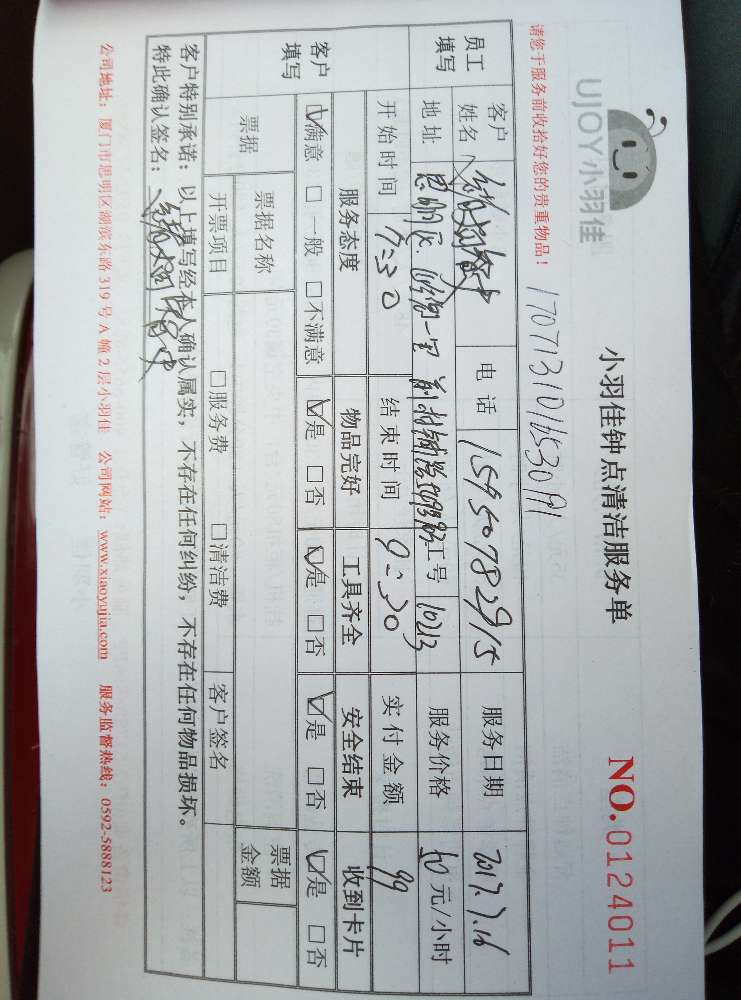 UJOY小羽佳
小羽佳钟点清洁服务单
NO.0124011
请您于服务前收拾好您的贵重物品！
170713101653091
员工填写
客户姓名
电话 15950782915
服务日期 2017.7.16
地址 思明区
工号 1013
服务价格 50元/小时
开始时间 7:30
结束时间 9:30
实付金额 99
客户填写
服务态度 物品完好 工具齐全 安全结束 收到卡片
☑满意 □一般 □不满意 ☑是 □否 ☑是 □否 ☑是 □否 ☑是 □否
票据
票据名称
票据金额
开票项目 □服务费 □清洁费 客户签名
客户特别承诺：以上填写经本人确认属实，不存在任何纠纷，不存在任何物品损坏。
特此确认签名：
公司地址：厦门市思明区湖滨东路319号A幢2层小羽佳 公司网站：www.xiaoyujia.com 服务监督热线：0592-5888123